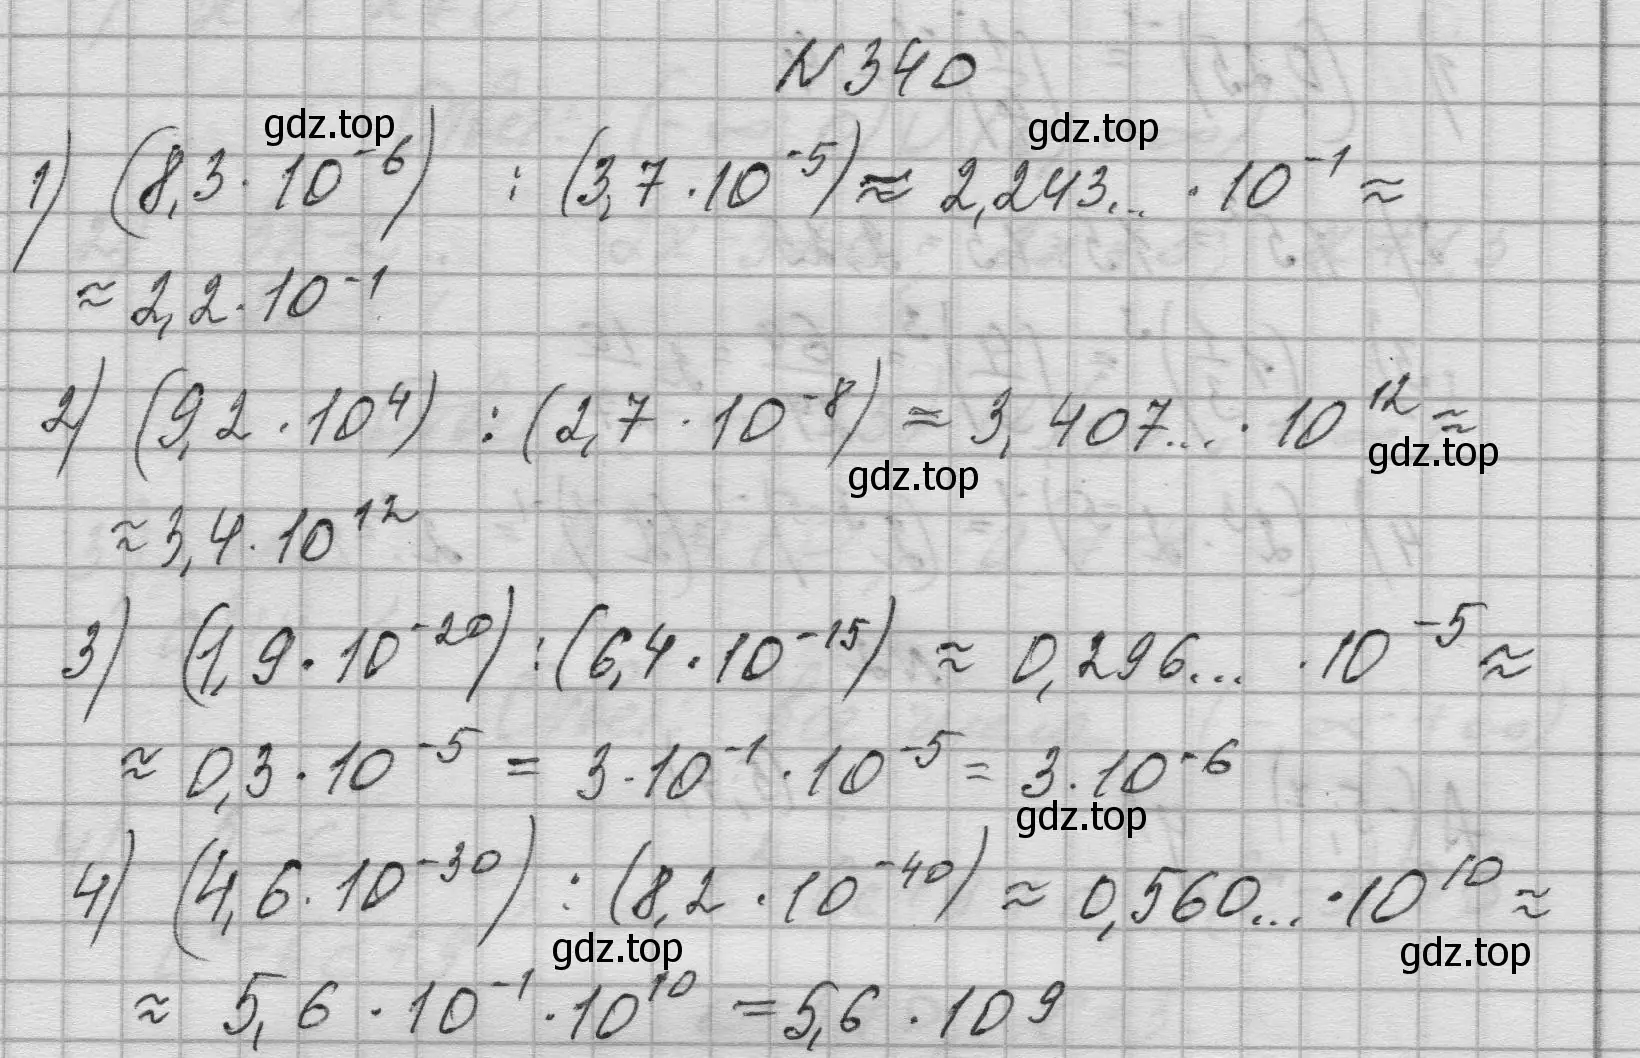 N 340
gdz.top gdz.top
1) (8,3 · 10⁻⁶) : (3,7 · 10⁻⁵) ≈ 2,243... · 10⁻¹ ≈
≈ 2,2 · 10⁻¹
2) (9,2 · 10⁴) : (2,7 · 10⁻⁸) = 3,407... · 10¹² ≈
gdz.top gdz.top
≈ 3,4 · 10¹²
3) (1,9 · 10⁻²⁰) : (6,4 · 10⁻¹⁵) ≈ 0,296... · 10⁻⁵ ≈
≈ 0,3 · 10⁻⁵ = 3 · 10⁻¹ · 10⁻⁵ = 3 · 10⁻⁶
gdz.top
4) (4,6 · 10⁻³⁰) : (8,2 · 10⁻⁴⁰) ≈ 0,560... · 10¹⁰ ≈
gdz.top gdz.top
≈ 5,6 · 10⁻¹ · 10¹⁰ = 5,6 · 10⁹